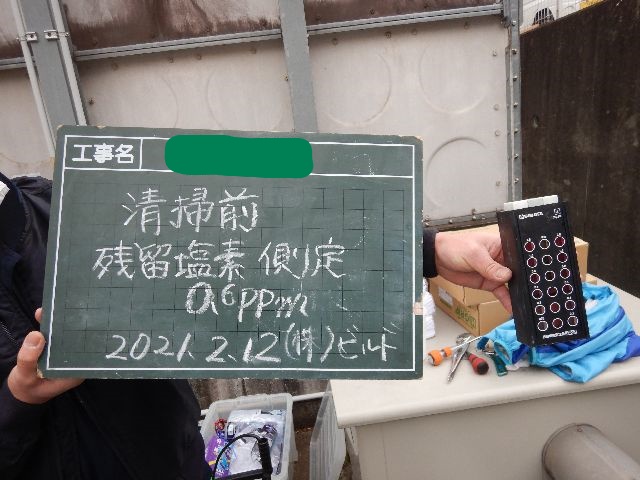 工事名
清掃前
残留塩素 側り定
0.6ppm
2021.2.12(株)ビルド